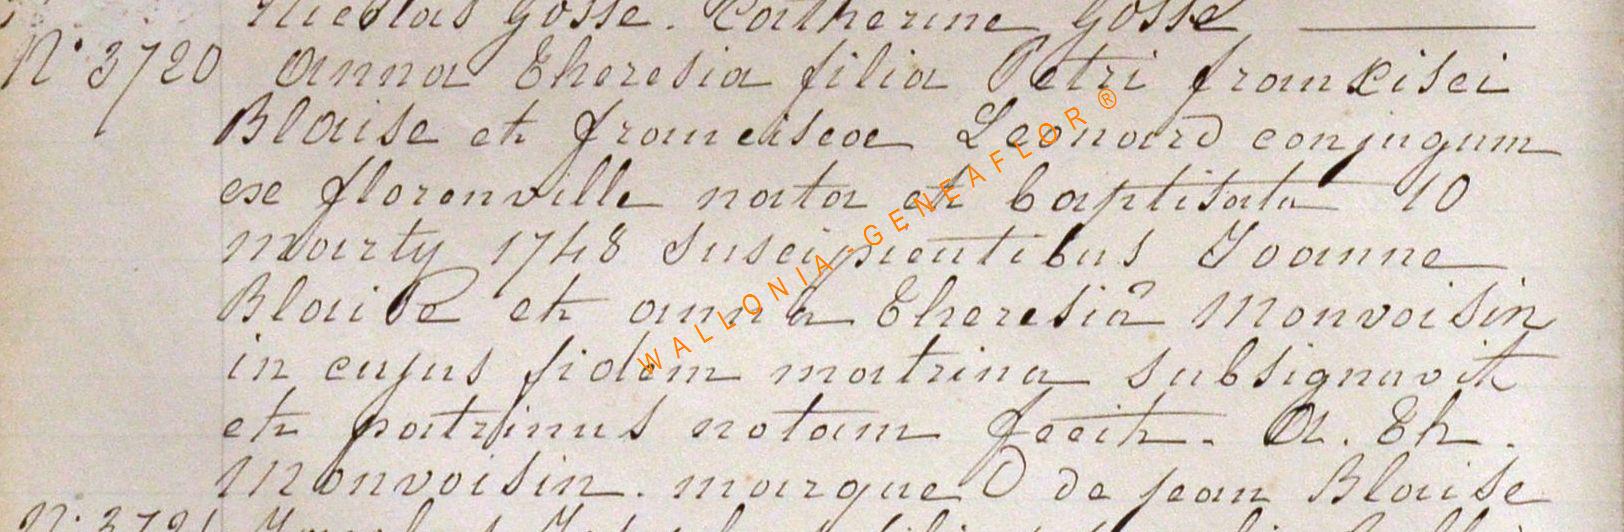 Nicolas Gosse. Catherine Gosse
N° 3720 Anna Theresia filia Petri francisci
Blaise et franciscae Leonard conjugum
ex florenville nata et baptisata 10
marty 1748 suscipientibus Joanne
Blaise et anna Theresia Monvoisin
in cujus fidem matrina subsignavit
et patrinus notam fecit. A. Th.
Monvoisin. marque D de jean Blaise
N° 3721
WALLONIA-GENEAFLOR®